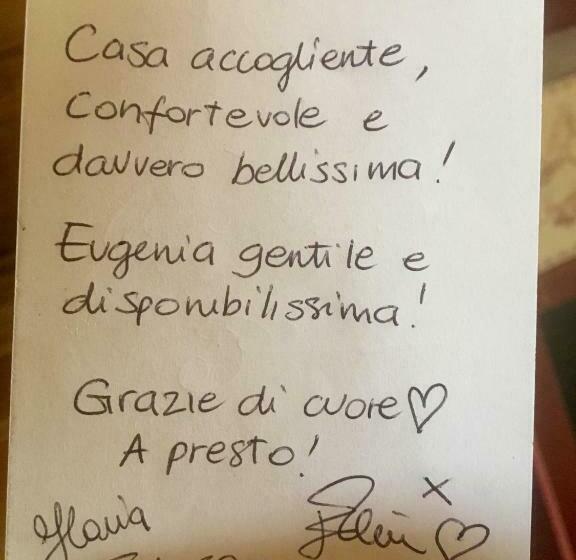 Casa accogliente,
Confortevole e
davvero bellissima!
Eugenia gentile e
disponibilissima!
Grazie di cuore♡
A presto!
x
Ilaria
♡